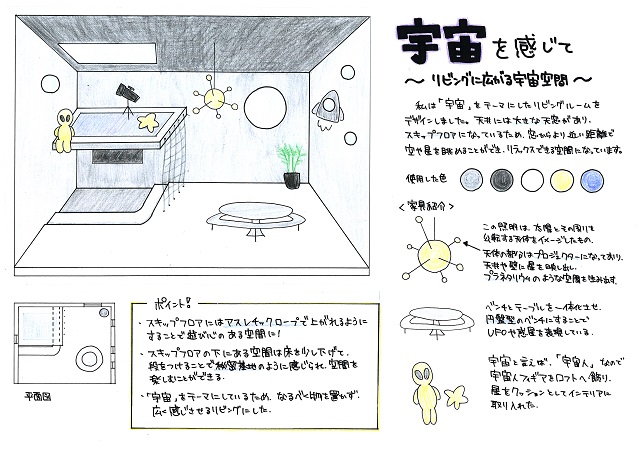 宇宙を感じて
～ リビングに広がる宇宙空間 ～
私は「宇宙」をテーマにしたリビングルームを
デザインしました。天井には大きな天窓があり、
スキップフロアになっているため、窓からより近い距離で
空や星を眺めることができ、リラックスできる空間になっています。
使用した色
＜家具紹介＞
この照明は、太陽とその周りを
公転する天体をイメージしたもの。
天体の部分はプロジェクターになっており、
天井や壁に星を映し出し、
プラネタリウムのような空間を生み出す。
ベンチとテーブルを一体化させ、
円盤型のベンチにすることで
UFOや惑星を表現している。
宇宙と言えば、「宇宙人」なので
宇宙人フィギアをロフトへ飾り、
星をクッションとしてインテリアに
取り入れた。
平面図
ポイント！
・スキップフロアにはアスレチックロープで上がれるように
することで遊び心のある空間に！
・スキップフロアの下にある空間は床を少し下げて、
段をつけることで秘密基地のように感じられ、空間を
楽しむことができる。
・「宇宙」をテーマにしているため、なるべく物を置かず、
広く感じさせるリビングにした。